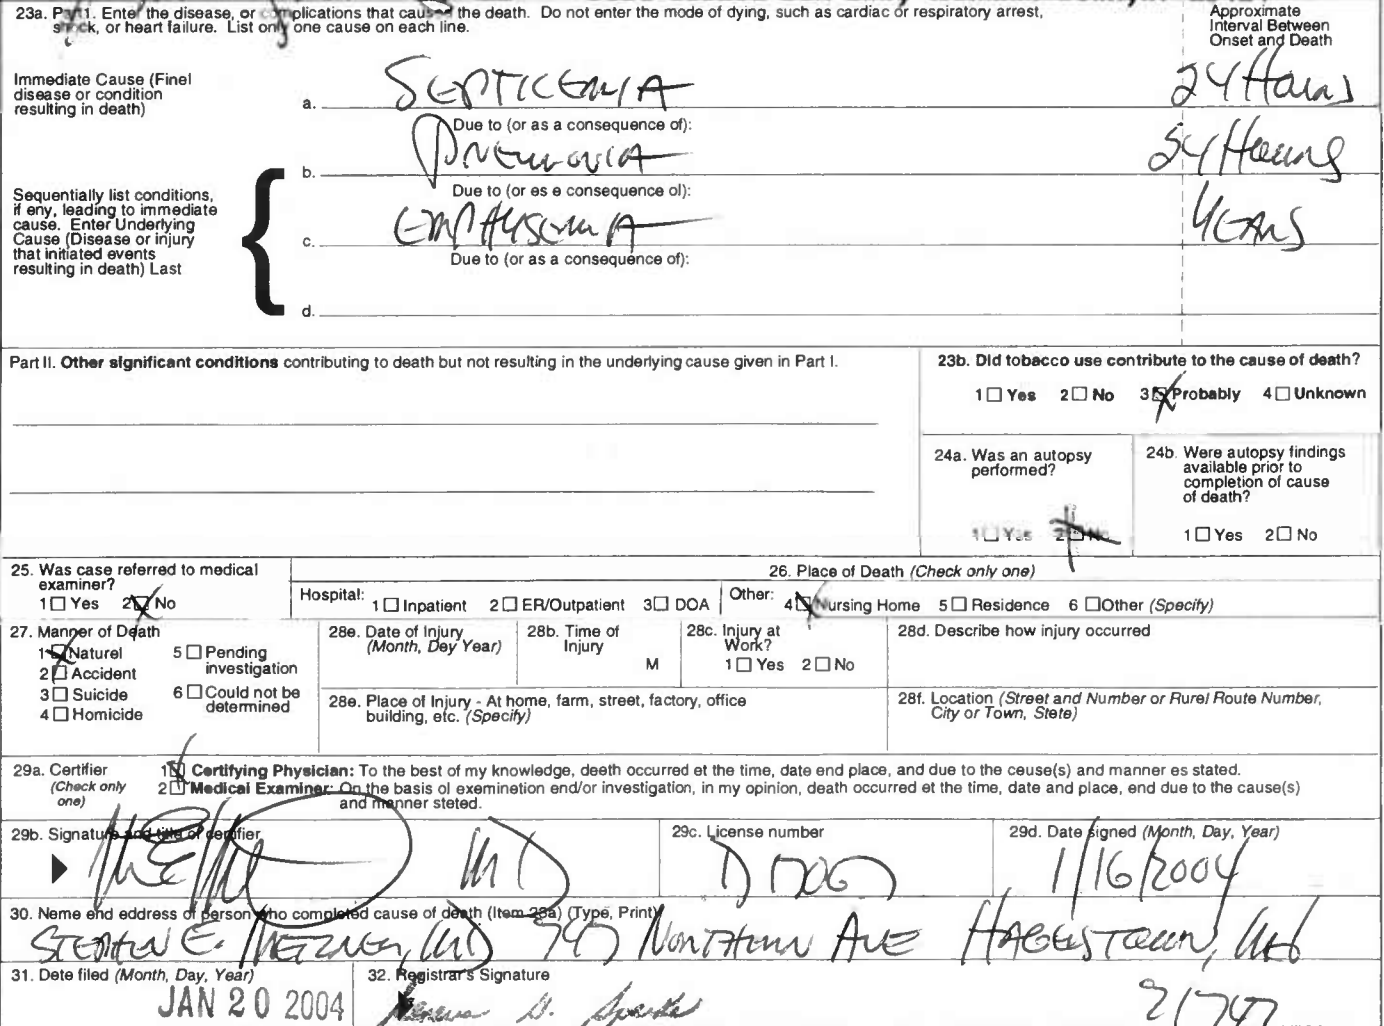 23a. Part 1. Enter the disease, or complications that caused the death. Do not enter the mode of dying, such as cardiac or respiratory arrest,
shock, or heart failure. List only one cause on each line.
Approximate
Interval Between
Onset and Death
Immediate Cause (Finel
disease or condition
resulting in death)
a. SEPTICEMIA 24 Hours
Due to (or as a consequence of):
b. PNEUMONIA 24 Hours
Due to (or es e consequence of):
Sequentially list conditions,
if eny, leading to immediate
cause. Enter Underlying
Cause (Disease or injury
that initiated events
resulting in death) Last
c. EMPHYSEMA YEARS
Due to (or as a consequence of):
d.
Part II. Other significant conditions contributing to death but not resulting in the underlying cause given in Part I.
23b. Did tobacco use contribute to the cause of death?
1 Yes 2 No 3 Probably 4 Unknown
24a. Was an autopsy
performed?
1 Yes 2 No
24b. Were autopsy findings
available prior to
completion of cause
of death?
1 Yes 2 No
25. Was case referred to medical
examiner?
1 Yes 2 No
26. Place of Death (Check only one)
Hospital: 1 Inpatient 2 ER/Outpatient 3 DOA Other: 4 Nursing Home 5 Residence 6 Other (Specify)
27. Manner of Death
1 Naturel
2 Accident
3 Suicide
4 Homicide
5 Pending
investigation
6 Could not be
determined
28e. Date of Injury
(Month, Dey Year)
28b. Time of
Injury
M
28c. Injury at
Work?
1 Yes 2 No
28d. Describe how injury occurred
28e. Place of Injury - At home, farm, street, factory, office
building, etc. (Specify)
28f. Location (Street and Number or Rurel Route Number,
City or Town, Stete)
29a. Certifier
(Check only
one)
1 Certifying Physician: To the best of my knowledge, deeth occurred et the time, date end place, and due to the ceuse(s) and manner es stated.
2 Medical Examiner: On the basis of exeminetion end/or investigation, in my opinion, death occurred et the time, date and place, end due to the cause(s)
and menner steted.
29b. Signature and title of certifier
MD
29c. License number
29d. Date signed (Month, Day, Year)
1/16/2004
30. Neme end eddress of person who completed cause of death (Item 23a) (Type, Print)
STEPHEN E. METZNER, MD 747 NORTHERN AVE HAGERSTOWN, MD
31. Dete filed (Month, Day, Year)
JAN 20 2004
32. Registrar's Signature
21742